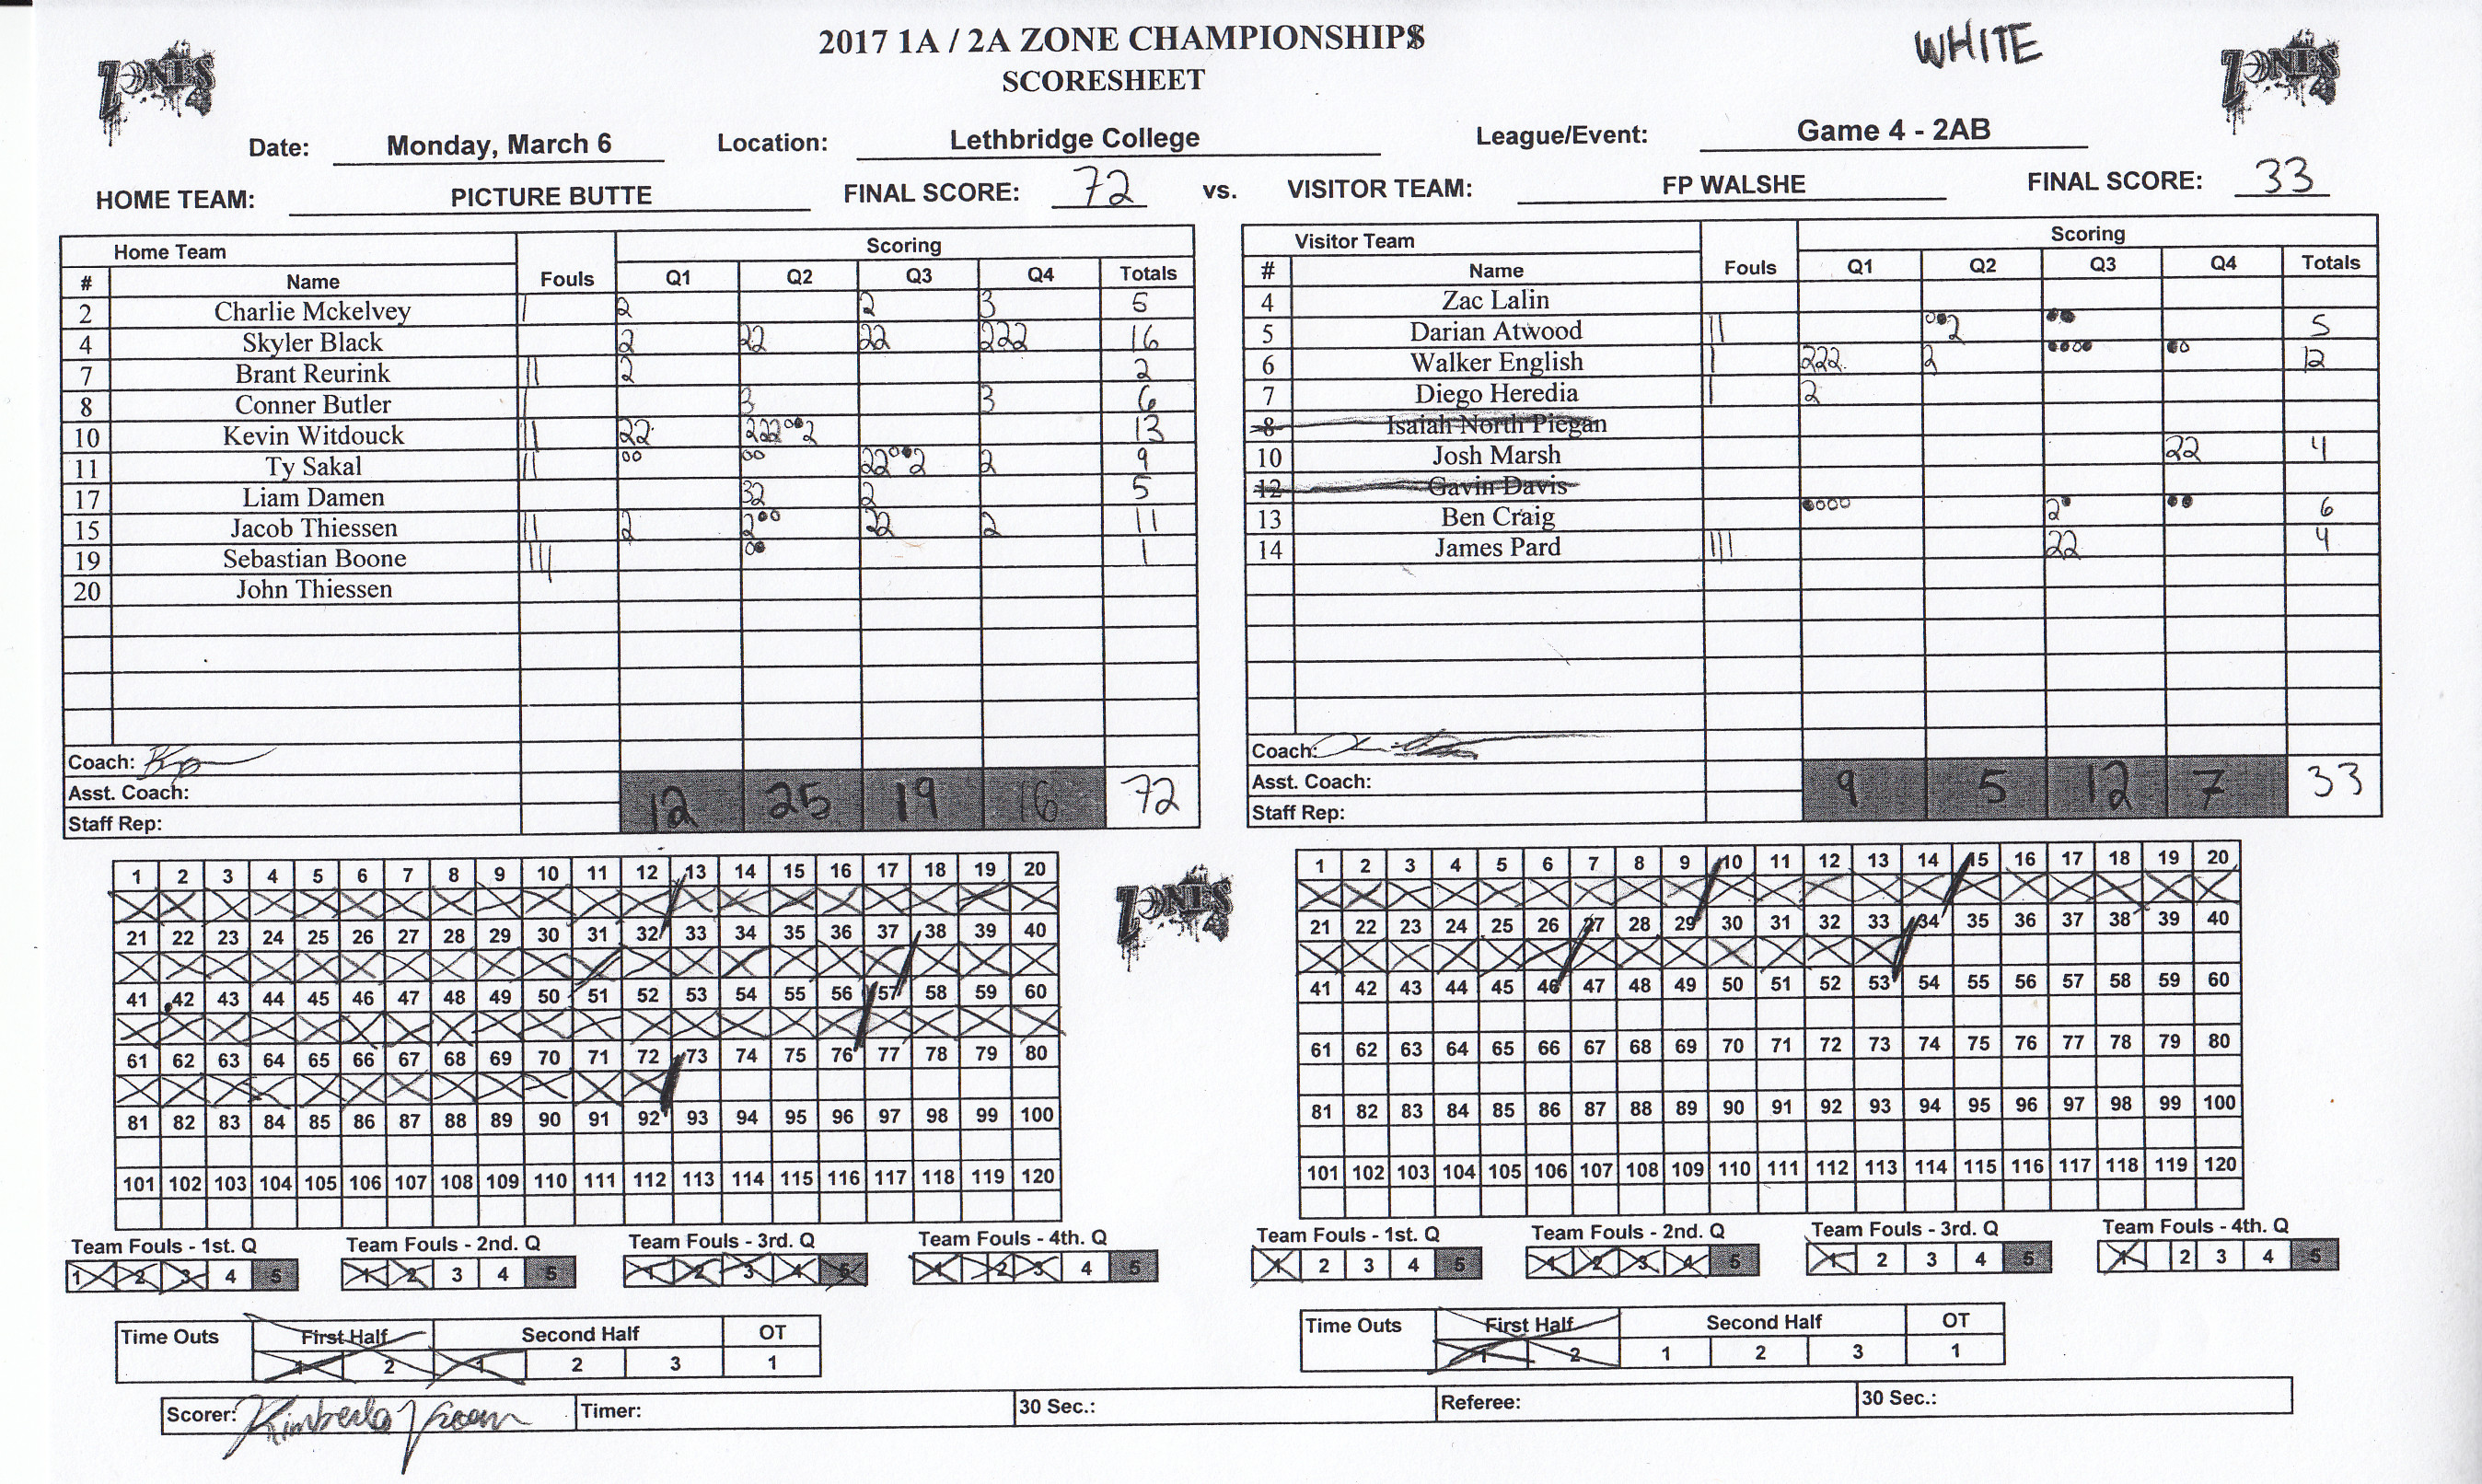 2017 1A / 2A ZONE CHAMPIONSHIPS
SCORESHEET
WHITE
ZONES
ZONES
Date: Monday, March 6 Location: Lethbridge College League/Event: Game 4 - 2AB
HOME TEAM: PICTURE BUTTE FINAL SCORE: 72 vs. VISITOR TEAM: FP WALSHE FINAL SCORE: 33
Home Team Fouls Scoring
# Name Q1 Q2 Q3 Q4 Totals
2 Charlie Mckelvey 2 2 3 5
4 Skyler Black 2 22 22 222 16
7 Brant Reurink 2 2
8 Conner Butler 3 3 6
10 Kevin Witdouck 22 222 2 13
11 Ty Sakal 22 2 2 9
17 Liam Damen 32 2 5
15 Jacob Thiessen 2 2 22 2 11
19 Sebastian Boone 1
20 John Thiessen
Coach:
Asst. Coach:
Staff Rep:
12 25 19 16 72
Visitor Team Fouls Scoring
# Name Q1 Q2 Q3 Q4 Totals
4 Zac Lalin
5 Darian Atwood 2 5
6 Walker English 222 2 12
7 Diego Heredia 2
8 Isaiah North Piegan
10 Josh Marsh 22 4
12 Gavin Davis
13 Ben Craig 2 6
14 James Pard 22 4
Coach:
Asst. Coach:
Staff Rep:
9 5 12 7 33
1 2 3 4 5 6 7 8 9 10 11 12 13 14 15 16 17 18 19 20
21 22 23 24 25 26 27 28 29 30 31 32 33 34 35 36 37 38 39 40
41 42 43 44 45 46 47 48 49 50 51 52 53 54 55 56 57 58 59 60
61 62 63 64 65 66 67 68 69 70 71 72 73 74 75 76 77 78 79 80
81 82 83 84 85 86 87 88 89 90 91 92 93 94 95 96 97 98 99 100
101 102 103 104 105 106 107 108 109 110 111 112 113 114 115 116 117 118 119 120
ZONES
1 2 3 4 5 6 7 8 9 10 11 12 13 14 15 16 17 18 19 20
21 22 23 24 25 26 27 28 29 30 31 32 33 34 35 36 37 38 39 40
41 42 43 44 45 46 47 48 49 50 51 52 53 54 55 56 57 58 59 60
61 62 63 64 65 66 67 68 69 70 71 72 73 74 75 76 77 78 79 80
81 82 83 84 85 86 87 88 89 90 91 92 93 94 95 96 97 98 99 100
101 102 103 104 105 106 107 108 109 110 111 112 113 114 115 116 117 118 119 120
Team Fouls - 1st. Q Team Fouls - 2nd. Q Team Fouls - 3rd. Q Team Fouls - 4th. Q
1 2 3 4 5 1 2 3 4 5 1 2 3 4 5 1 2 3 4 5
Team Fouls - 1st. Q Team Fouls - 2nd. Q Team Fouls - 3rd. Q Team Fouls - 4th. Q
1 2 3 4 5 1 2 3 4 5 1 2 3 4 5 1 2 3 4 5
Time Outs First Half Second Half OT
1 2 1 2 3 1
Time Outs First Half Second Half OT
1 2 1 2 3 1
Scorer: Timer: 30 Sec.: Referee: 30 Sec.: